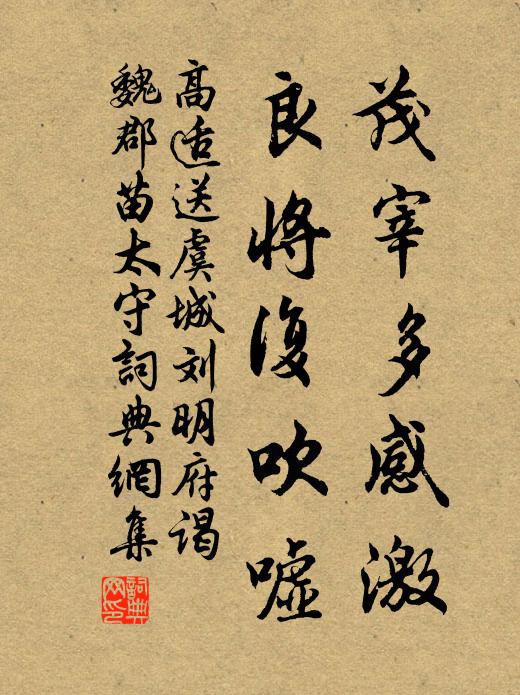 茂宰多感激
良将復吹嘘
高适送虞城刘明府谒
魏郡苗太守詞典網集
詞典网印